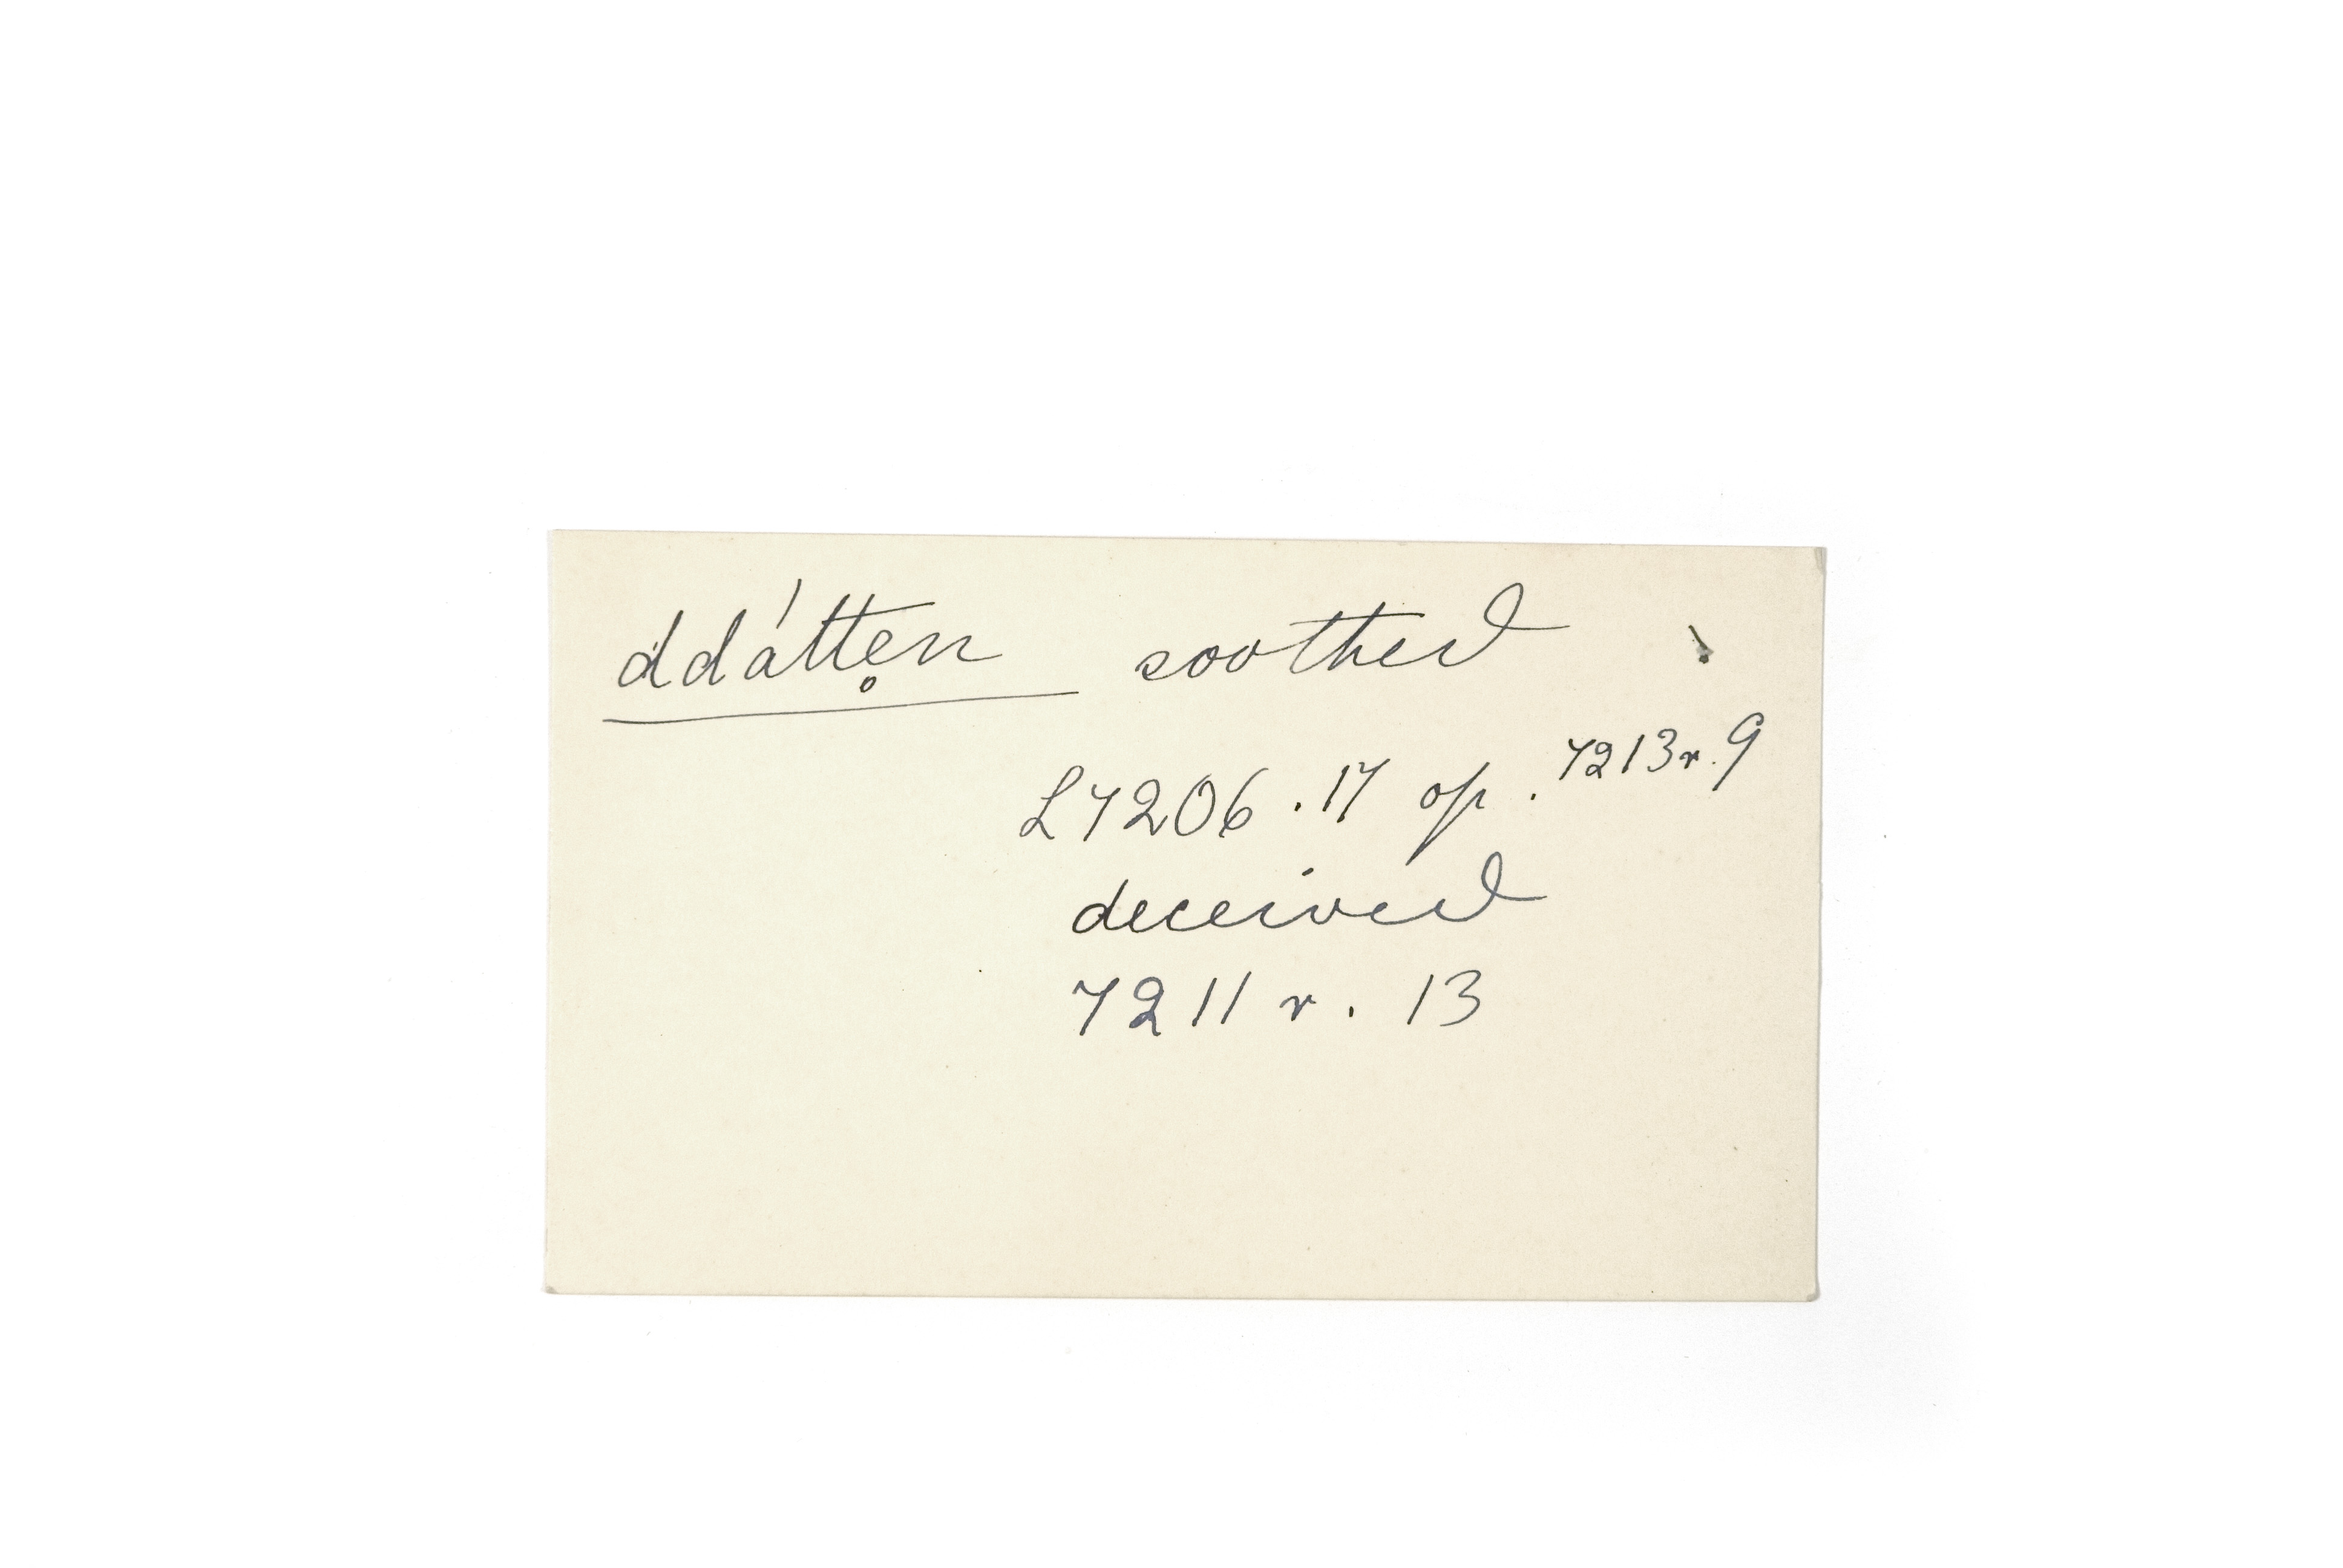 ddátte̥n soothed
L7206.17 op. 7213r.9
deceived
7211 r. 13